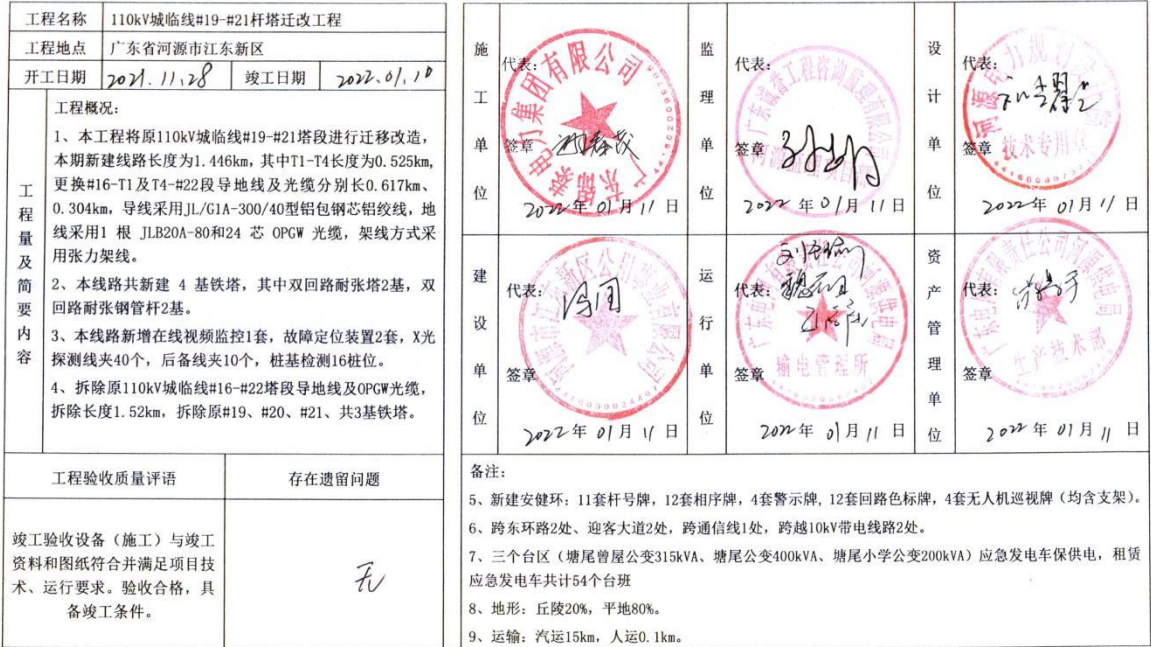 工程名称 110kV城临线#19-#21杆塔迁改工程
工程地点 广东省河源市江东新区
开工日期 2021.11.28 竣工日期 2022.01.10
工程量及简要内容
工程概况:
1、本工程将原110kV城临线#19-#21塔段进行迁移改造，
本期新建线路长度为1.446km,其中T1-T4长度为0.525km,
更换#16-T1及T4-#22段导地线及光缆分别长0.617km、
0.304km，导线采用JL/G1A-300/40型铝包钢芯铝绞线，地
线采用1 根 JLB20A-80和24 芯 OPGW 光缆，架线方式采
用张力架线。
2、本线路共新建 4 基铁塔，其中双回路耐张塔2基，双
回路耐张钢管杆2基。
3、本线路新增在线视频监控1套，故障定位装置2套，X光
探测线夹40个，后备线夹10个，桩基检测16桩位。
4、拆除原110kV城临线#16-#22塔段导地线及OPGW光缆，
拆除长度1.52km，拆除原#19、#20、#21、共3基铁塔。
工程验收质量评语 存在遗留问题
竣工验收设备（施工）与竣工
资料和图纸符合并满足项目技
术、运行要求。验收合格，具
备竣工条件。
无
施工单位
代表:
签章
电力集团有限公司
2022年 01月 11 日
监理单位
代表:
签章
广东诚誉工程咨询监理有限公司
2022 年 01月 11日
设计单位
代表:
签章
技术专用章
2022年 01月 11 日
建设单位
代表:
签章
2022年 01月 11 日
运行单位
代表:
签章
输电管理所
2022年 01月 11 日
资产管理单位
代表:
签章
生产技术部
2022年 01月 11 日
备注:
5、新建安健环: 11套杆号牌，12套相序牌，4套警示牌, 12套回路色标牌，4套无人机巡视牌（均含支架）。
6、跨东环路2处、迎客大道2处，跨通信线1处，跨越10kV带电线路2处。
7、三个台区（塘尾曾屋公变315kVA、塘尾公变400kVA、塘尾小学公变200kVA）应急发电车保供电，租赁
应急发电车共计54个台班
8、地形: 丘陵20%，平地80%。
9、运输: 汽运15km，人运0.1km。